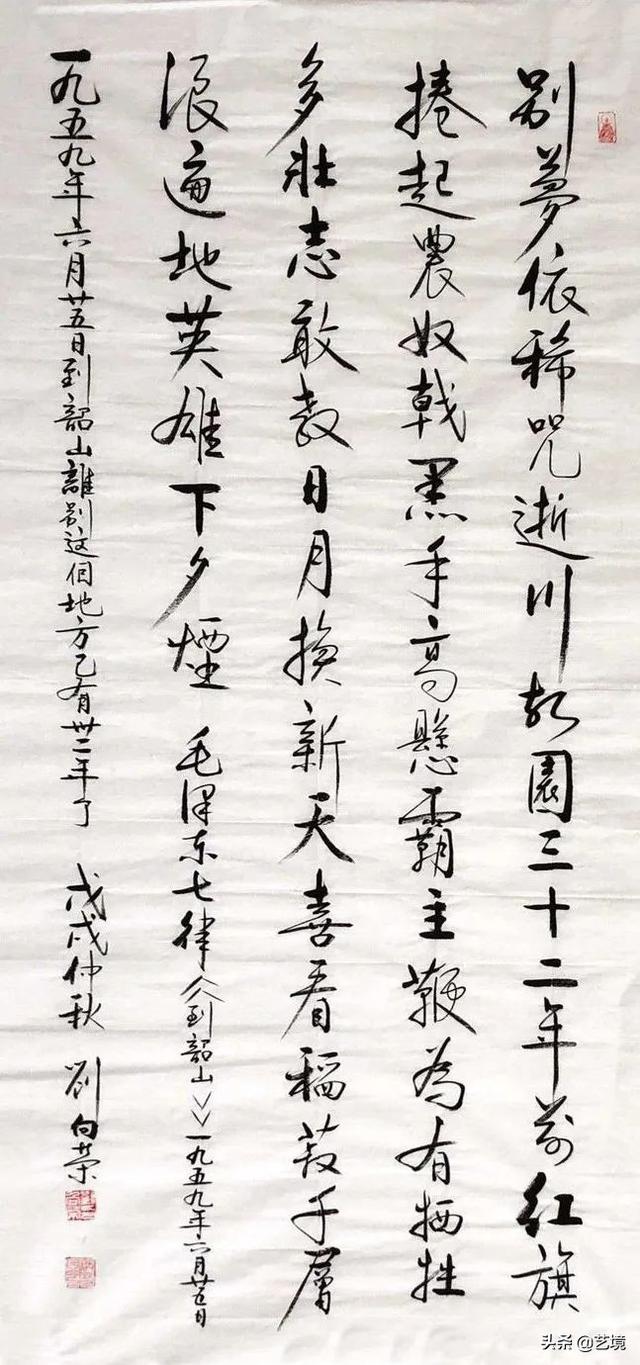 别夢依稀咒逝川故園三十二年前红旗
捲起農奴戟黑手高懸霸主鞭為有牺牲
多壮志敢教日月换新天喜看稻菽千層
浪遍地英雄下夕煙 毛泽东七律《到韶山》一九五九年六月廿五日
一九五九年六月廿五日到韶山離别这個地方已有卅二年了 戊戌仲秋 劉向荣
头条 @艺境